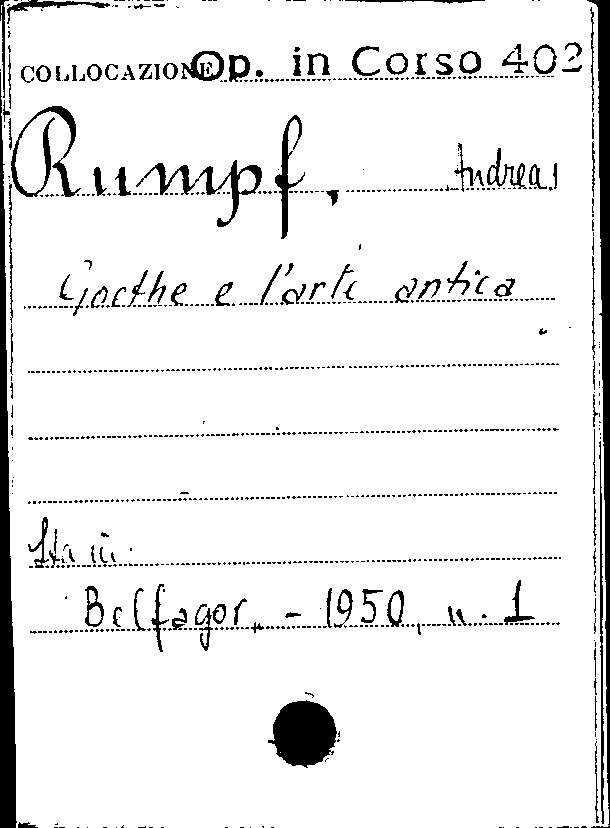 COLLOCAZIONE Op. in Corso 402
Rumpf, Andreas
Goethe e l'arte antica
Sta in:
Belfagor, - 1950, n. 1